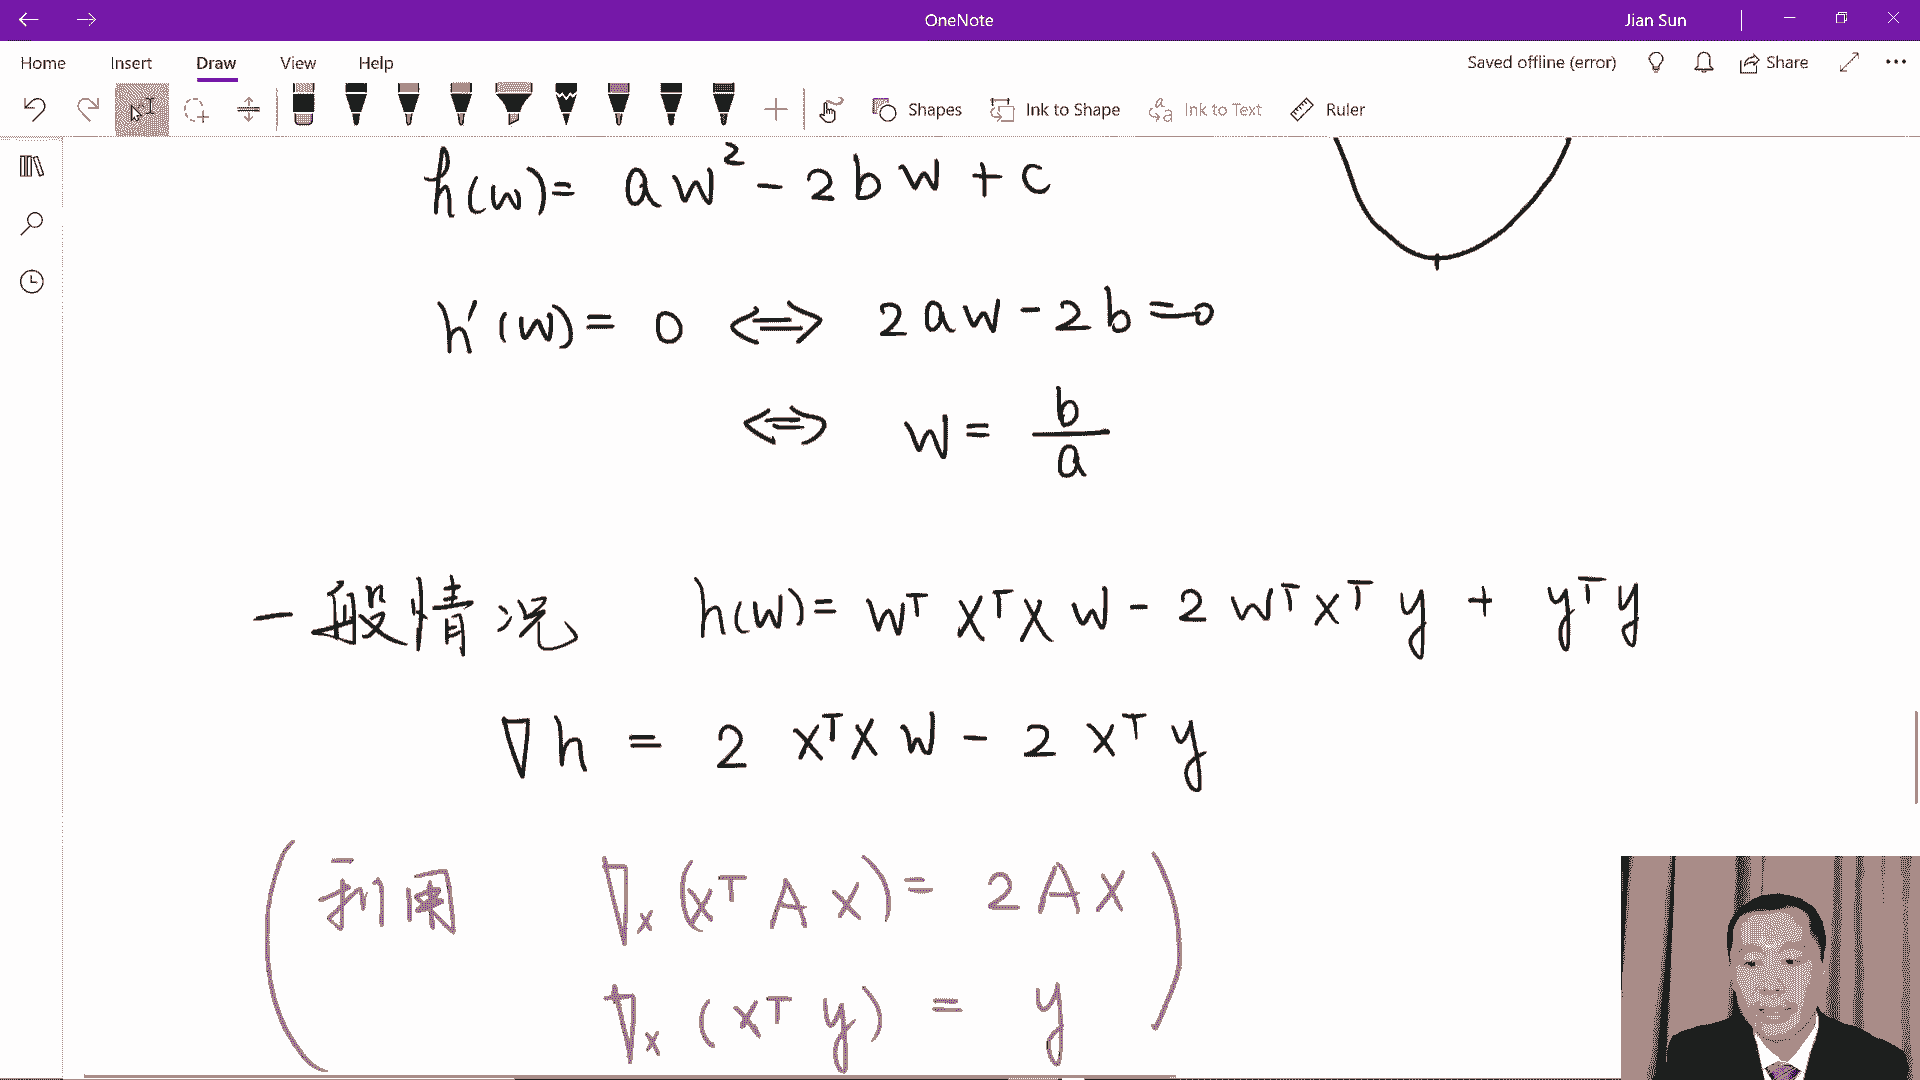 OneNote
Jian Sun
Home Insert Draw View Help
Saved offline (error) Share
Shapes Ink to Shape Ink to Text Ruler
h(w)= aw² - 2bw + c
h'(w)= 0 ⟺ 2aw - 2b = 0
⟺ w = b/a
一般情况 h(w)= wᵀ xᵀ x w - 2 wᵀ xᵀ y + yᵀ y
∇h = 2 xᵀ x w - 2 xᵀ y
( 利用 ∇ₓ (xᵀ A x) = 2 A x )
∇ₓ (xᵀ y) = y